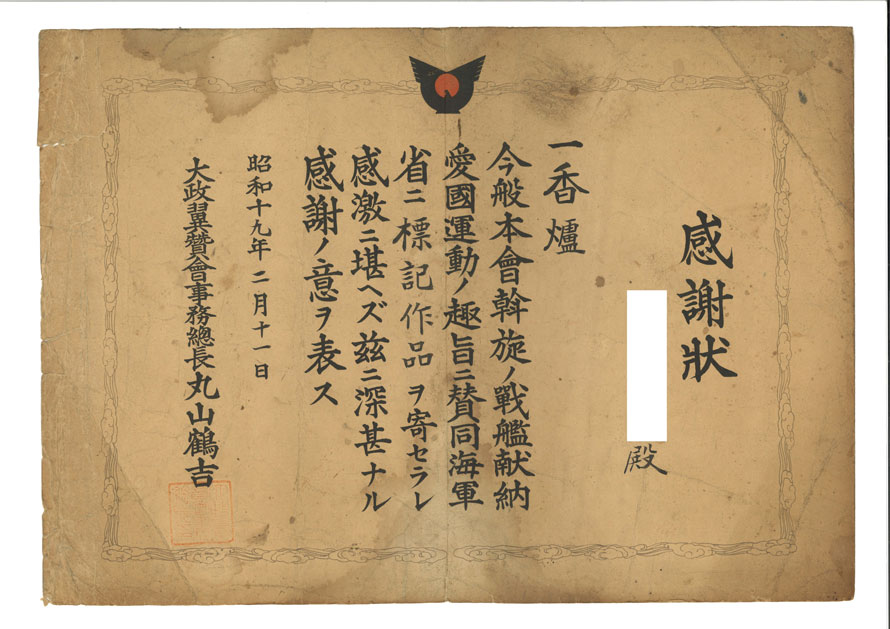 感謝狀
殿
一香爐
今般本會斡旋ノ戰艦献納
愛國運動ノ趣旨ニ賛同海軍
省ニ標記作品ヲ寄セラレ
感激ニ堪ヘズ玆ニ深甚ナル
感謝ノ意ヲ表ス
昭和十九年二月十一日
大政翼贊會事務總長丸山鶴吉